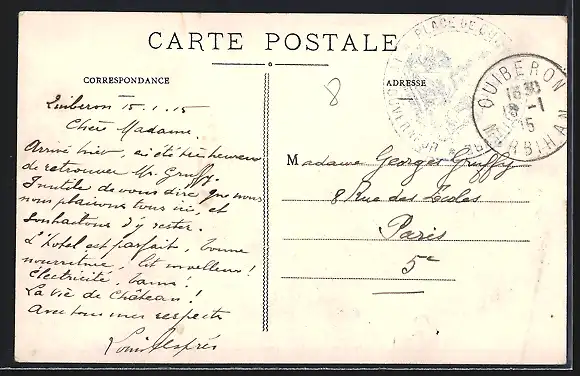 CARTE POSTALE
CORRESPONDANCE
ADRESSE
8
PLACE DE QUI
QUIBERON
1530
18 -1
15
MORBIHAN
Quiberon 15.1.15
Chère Madame.
Arrivé hier, ai été très heureux
de retrouver Mr. Gruffy.
Inutile de vous dire que nous
nous plaisons tous ici, et
souhaitons d'y rester.
L'hotel est parfait, bonne
nourriture, lit moelleux!
Électricité, bains!
La vie de Château!
Avec tous mes respects
Louis Després
Madame Georges Gruffy
8 Rue des Ecoles
Paris
5e